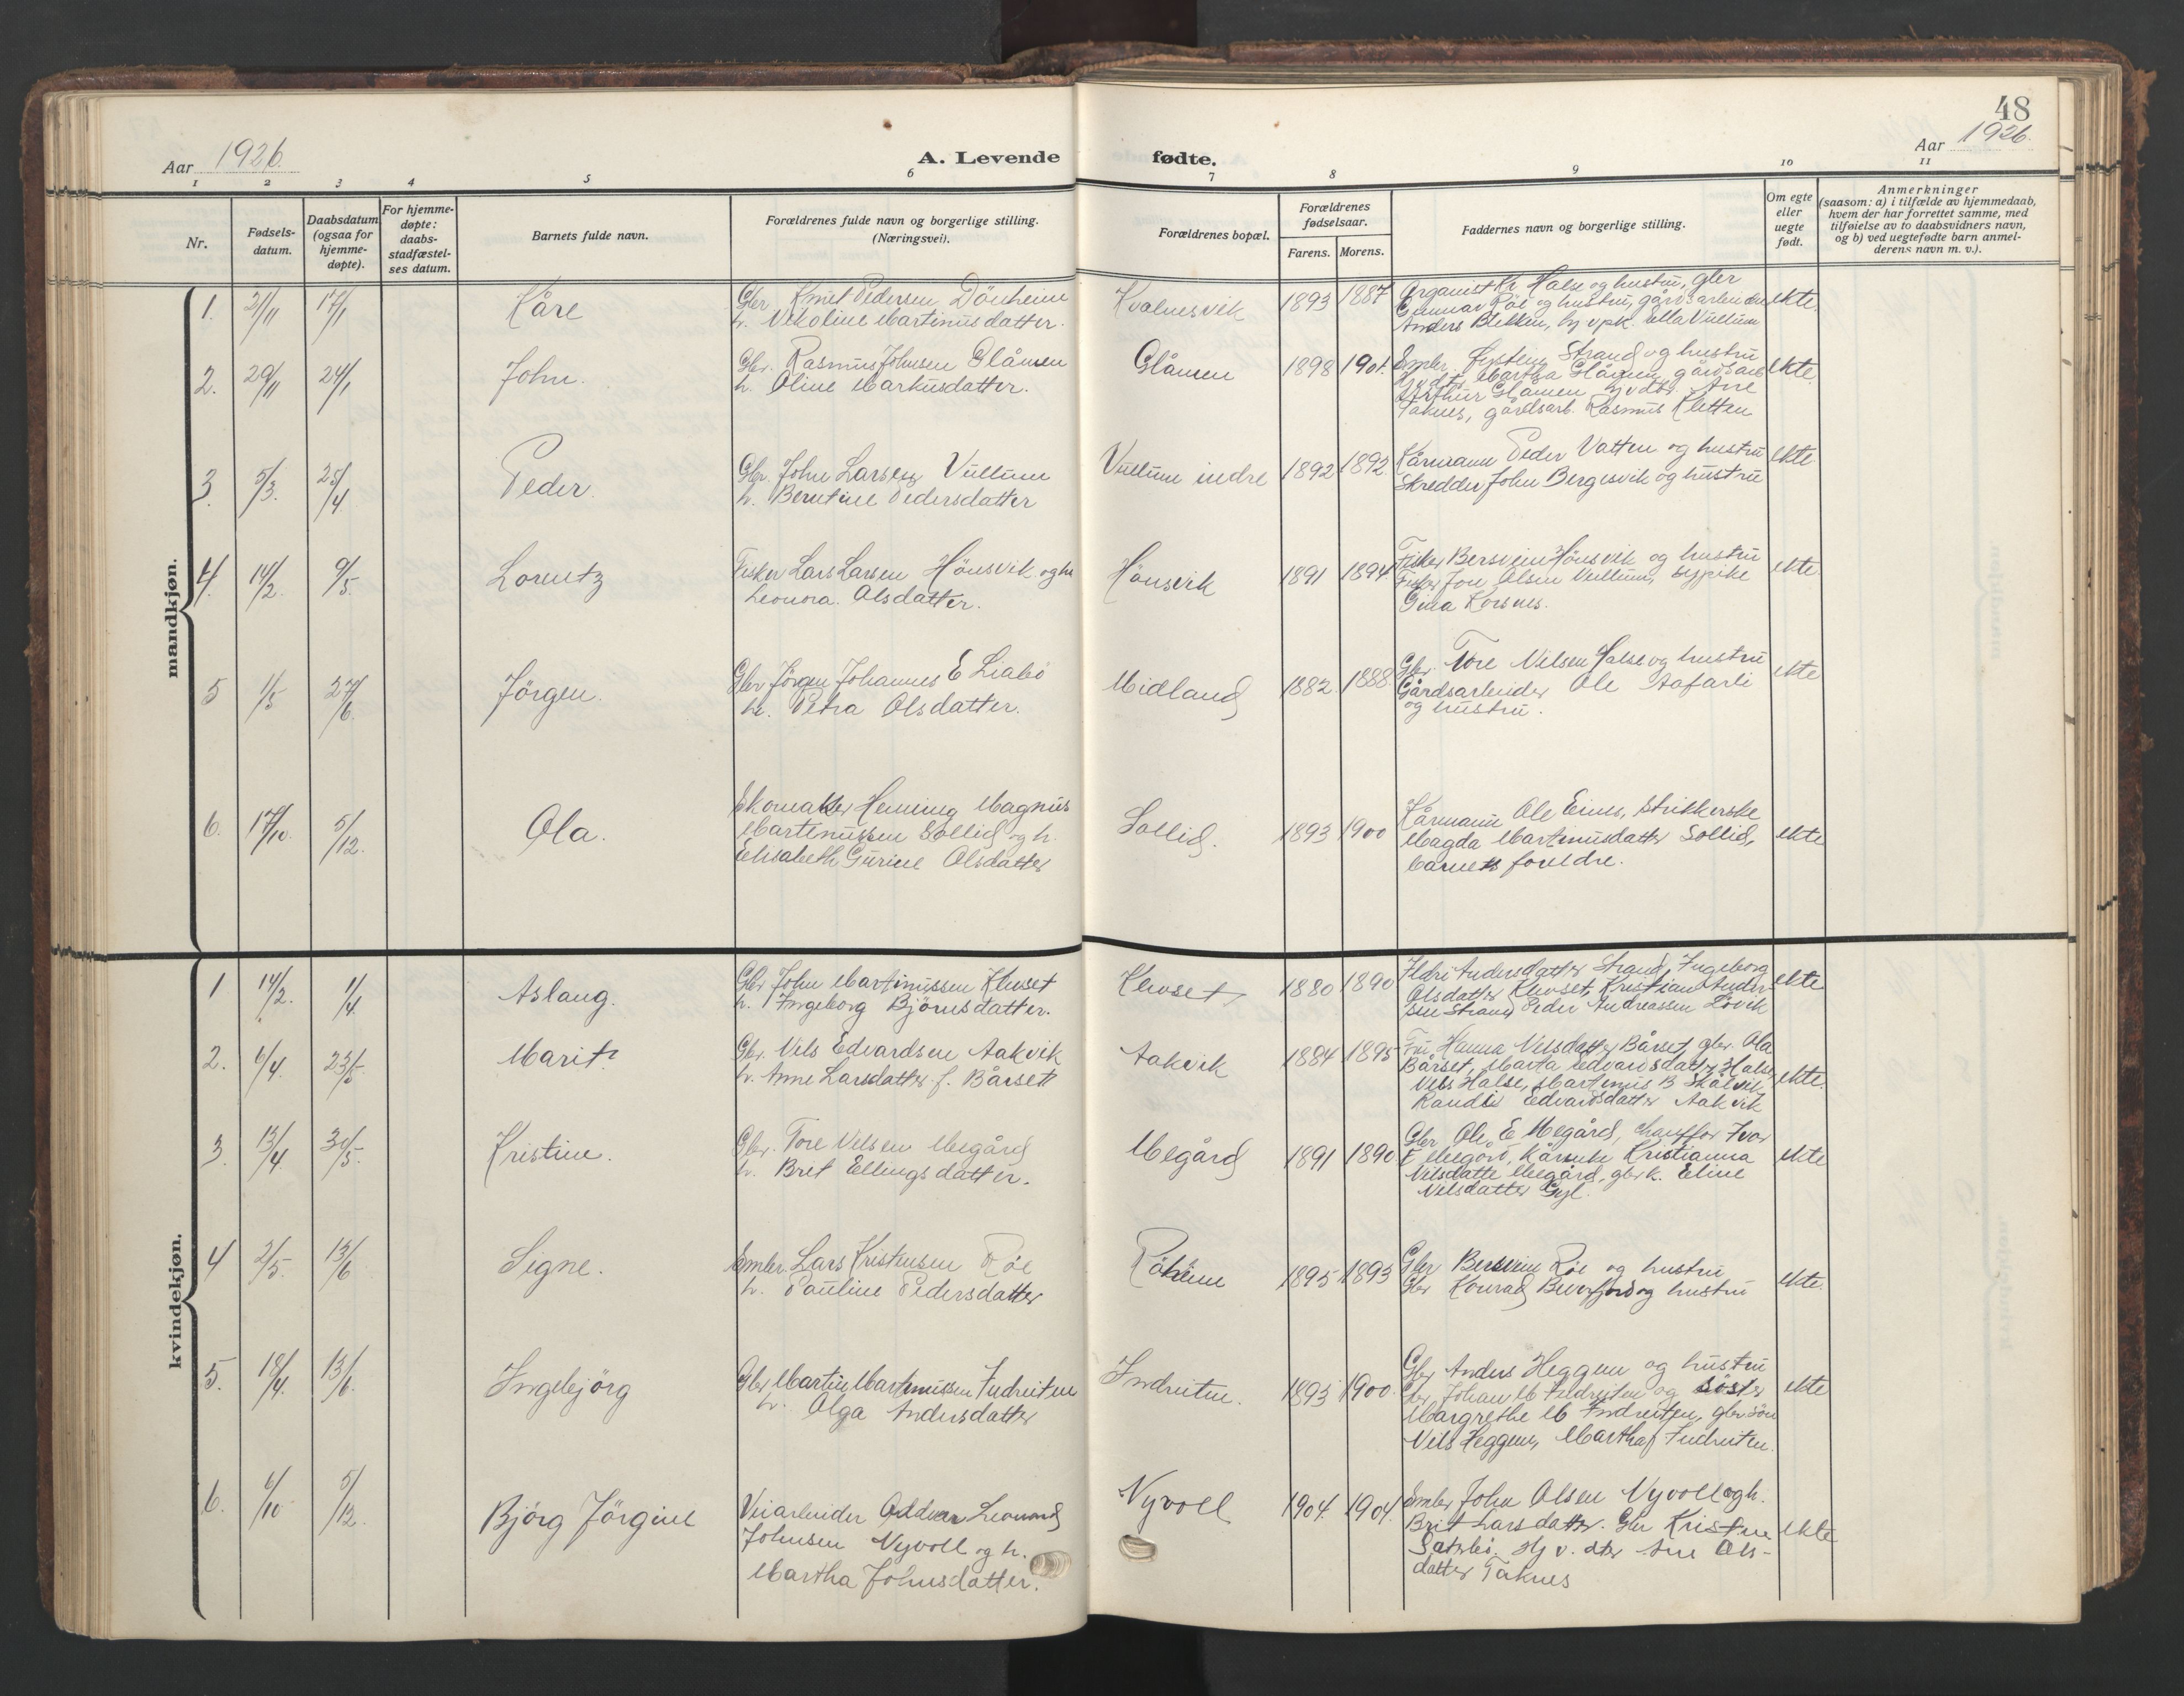 48
Aar 1926. A. Levende fødte. Aar 1926.
1 2 3 4 5 6 7 8 9 10 11
Nr.
Fødsels-
datum.
Daabsdatum
(ogsaa for
hjemme-
døpte).
For hjemme-
døpte:
daabs-
stadfæstel-
ses datum.
Barnets fulde navn.
Forældrenes fulde navn og borgerlige stilling.
(Næringsvei).
Forældrenes bopæl.
Forældrenes
fødselsaar.
Farens. Morens.
Faddernes navn og borgerlige stilling.
Om egte
eller
uegte
født.
Anmerkninger
(saasom: a) i tilfælde av hjemmedaab,
hvem der har forrettet samme, med
tilføielse av to daabsvidners navn,
og b) ved uegtefødte barn anmel-
derens navn m. v.).
mandkjøn.
1. 2/11 17/1 Kåre
Gbr Knut Pedersen Dönheim
h. Nikoline Martinusdatter.
Kvalnesvik 1893 1887
Organist Kr Halse og hustru, gbr
Gunnar Röe og hustru, gårdsarbeider
Anders Blekken, Ella Vullum
ekte.
2. 29/11 24/1 John.
Gbr. Rasmus Johnsen Glåmen
h. Oline Markusdatter.
Glåmen 1898 1901.
Strand og hustru
Martha Glåmen, gårdsarb
Arthur Glåmen hj vdtr. Ane
Taknes, gårdsarb. Rasmus Kletten
ekte.
3. 5/3. 25/4 Peder.
Gbr. John Larsen Vullum
h. Berntine Pedersdatter
Vullum indre 1892 1892
Kårmann Peder Vatten og hustru
Skredder John Bergesvik og hustru
ekte
4. 14/2. 9/5. Lorentz
Fisker Lars Larsen Hönsvik og hu
Leonora. Olsdatter.
Hönsvik 1891 1894
Fisker Bersvein Hönsvik og hustru
Fisker Tore Olsen Vullum, sypike
Gina Korsnes.
ekte.
5 1/5 27/6. Jörgen.
Gbr Jörgen Johannes E Liabö
h. Petra Olsdatter.
Midland 1882. 1888.
Gbr. Tore Nilsen Halse og hustru
Gårdsarbeider Ole Aafarli
og hustru.
ekte
6. 17/10. 5/12. Ola.
Skomaker Heming Magnus
Martinussen Sollid og h.
Elisabeth Gurine Olsdatter
Sollid. 1893 1900
Kårmann Ole Eines, strikkerske
Magda Martinusdatter Sollid,
barnets foreldre.
ekte
kvindekjøn.
1 14/2. 1/4 Aslaug.
Gbr John Martinussen Klevset
h. Ingeborg Björnsdatter.
Klevset 1880 1890
Ildri Andersdatter Strand, Ingeborg
Olsdatter Klevset, Kristian Ander-
sen Strand Peder Andreassen Lövik
ekte
2. 6/4. 23/5 Marit
Gbr. Nils Edvardsen Aakvik
h. Anne Larsdatter f. Bårset
Aakvik 1884 1895
Fru Hanna Nilsdatter Bårset, gbr. Ola
Bårset, Marta Edvardsdatter Halse
Nils Halse, Martinus B Skålvik
Randi Edvardsdatter Aakvik
ekte.
3. 13/4. 30/5. Kristine.
Gbr. Tore Nilsen Megård
h. Brit Ellingsdatter.
Megård 1891 1890
Gbr Ole E Megård, chauffør Ivar
E Megård, Kristianna
Nilsdatte Megård, gbrk. Eline
Nilsdatter Gyl.
ekte
4 2/5. 13/6 Signe.
Smbr. Lars Kristensen Röe
h. Pauline Pedersdatter
Röheim 1895 1893
Gbr Bersvein Röe og hustru
Gbr Konrad Beverfjord og hustru
ekte.
5. 18/4. 13/6. Ingebjörg
Gbr Martin Martinussen Indreiten
h. Olga Andersdatter
Indreiten. 1893 1900.
Gbr Anders Heggem og hustru
Gbr Johan M Indreiten og söster
Margrethe M Indreiten, gbr sön
Nils Heggem, Martha Indreiten.
ekte
6. 6/10 5/12. Björg Jörgine
Veiarbeider Oddvar Leonard
Johnsen Nyvoll og h.
Martha Johnsdatter.
Nyvoll 1904. 1904.
Smbr John Olsen Nyvoll og h.
Brit Larsdatter. Gbr Kristine
Sæterbö. Hj v. dtr Ane Ols-
datter Taknes
ekte